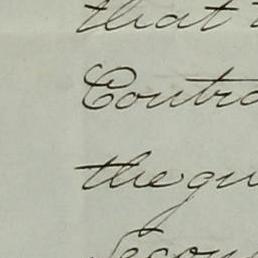 that
Contra
the gu
Secon